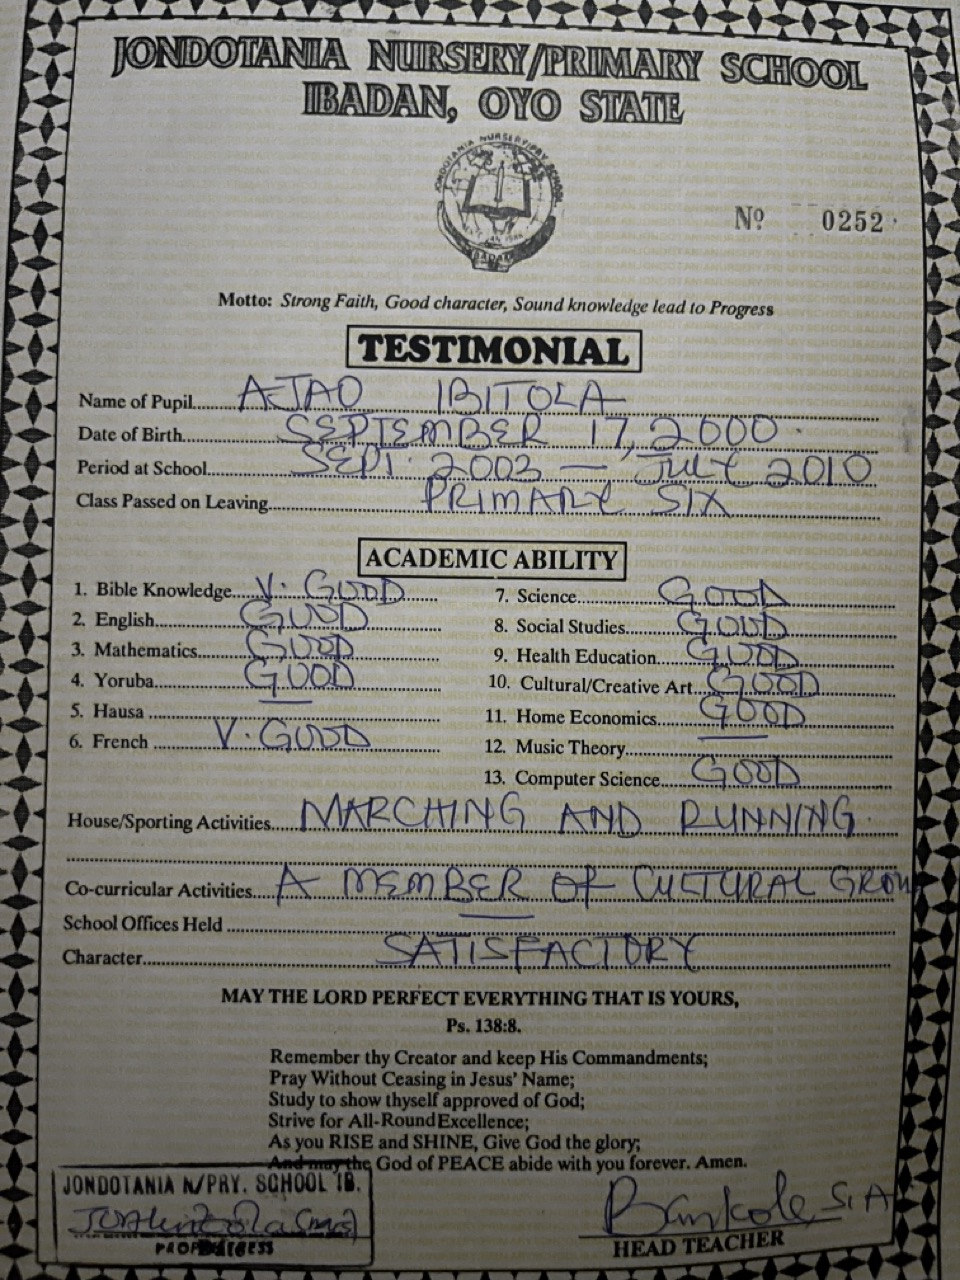 JONDOTANIA NURSERY/PRIMARY SCHOOL
IBADAN, OYO STATE
JONDOTANIA NURSERY/PRY. SCHOOL
IBADAN
Nº 0252
Motto: Strong Faith, Good character, Sound knowledge lead to Progress
TESTIMONIAL
Name of Pupil AJAO IBITOLA
Date of Birth SEPTEMBER 17, 2000
Period at School SEPT. 2003 — JULY 2010
Class Passed on Leaving PRIMARY SIX
ACADEMIC ABILITY
1. Bible Knowledge V. GOOD
2. English GOOD
3. Mathematics GOOD
4. Yoruba GOOD
5. Hausa —
6. French V. GOOD
7. Science GOOD
8. Social Studies GOOD
9. Health Education GOOD
10. Cultural/Creative Art GOOD
11. Home Economics GOOD
12. Music Theory —
13. Computer Science GOOD
House/Sporting Activities MARCHING AND RUNNING
Co-curricular Activities A MEMBER OF CULTURAL GROUP
School Offices Held —
Character SATISFACTORY
MAY THE LORD PERFECT EVERYTHING THAT IS YOURS,
Ps. 138:8.
Remember thy Creator and keep His Commandments;
Pray Without Ceasing in Jesus' Name;
Study to show thyself approved of God;
Strive for All-Round Excellence;
As you RISE and SHINE, Give God the glory;
And may the God of PEACE abide with you forever. Amen.
JONDOTANIA N/PRY. SCHOOL IB.
(Mrs)
PROPRIETRESS
Bankole, S. A
HEAD TEACHER